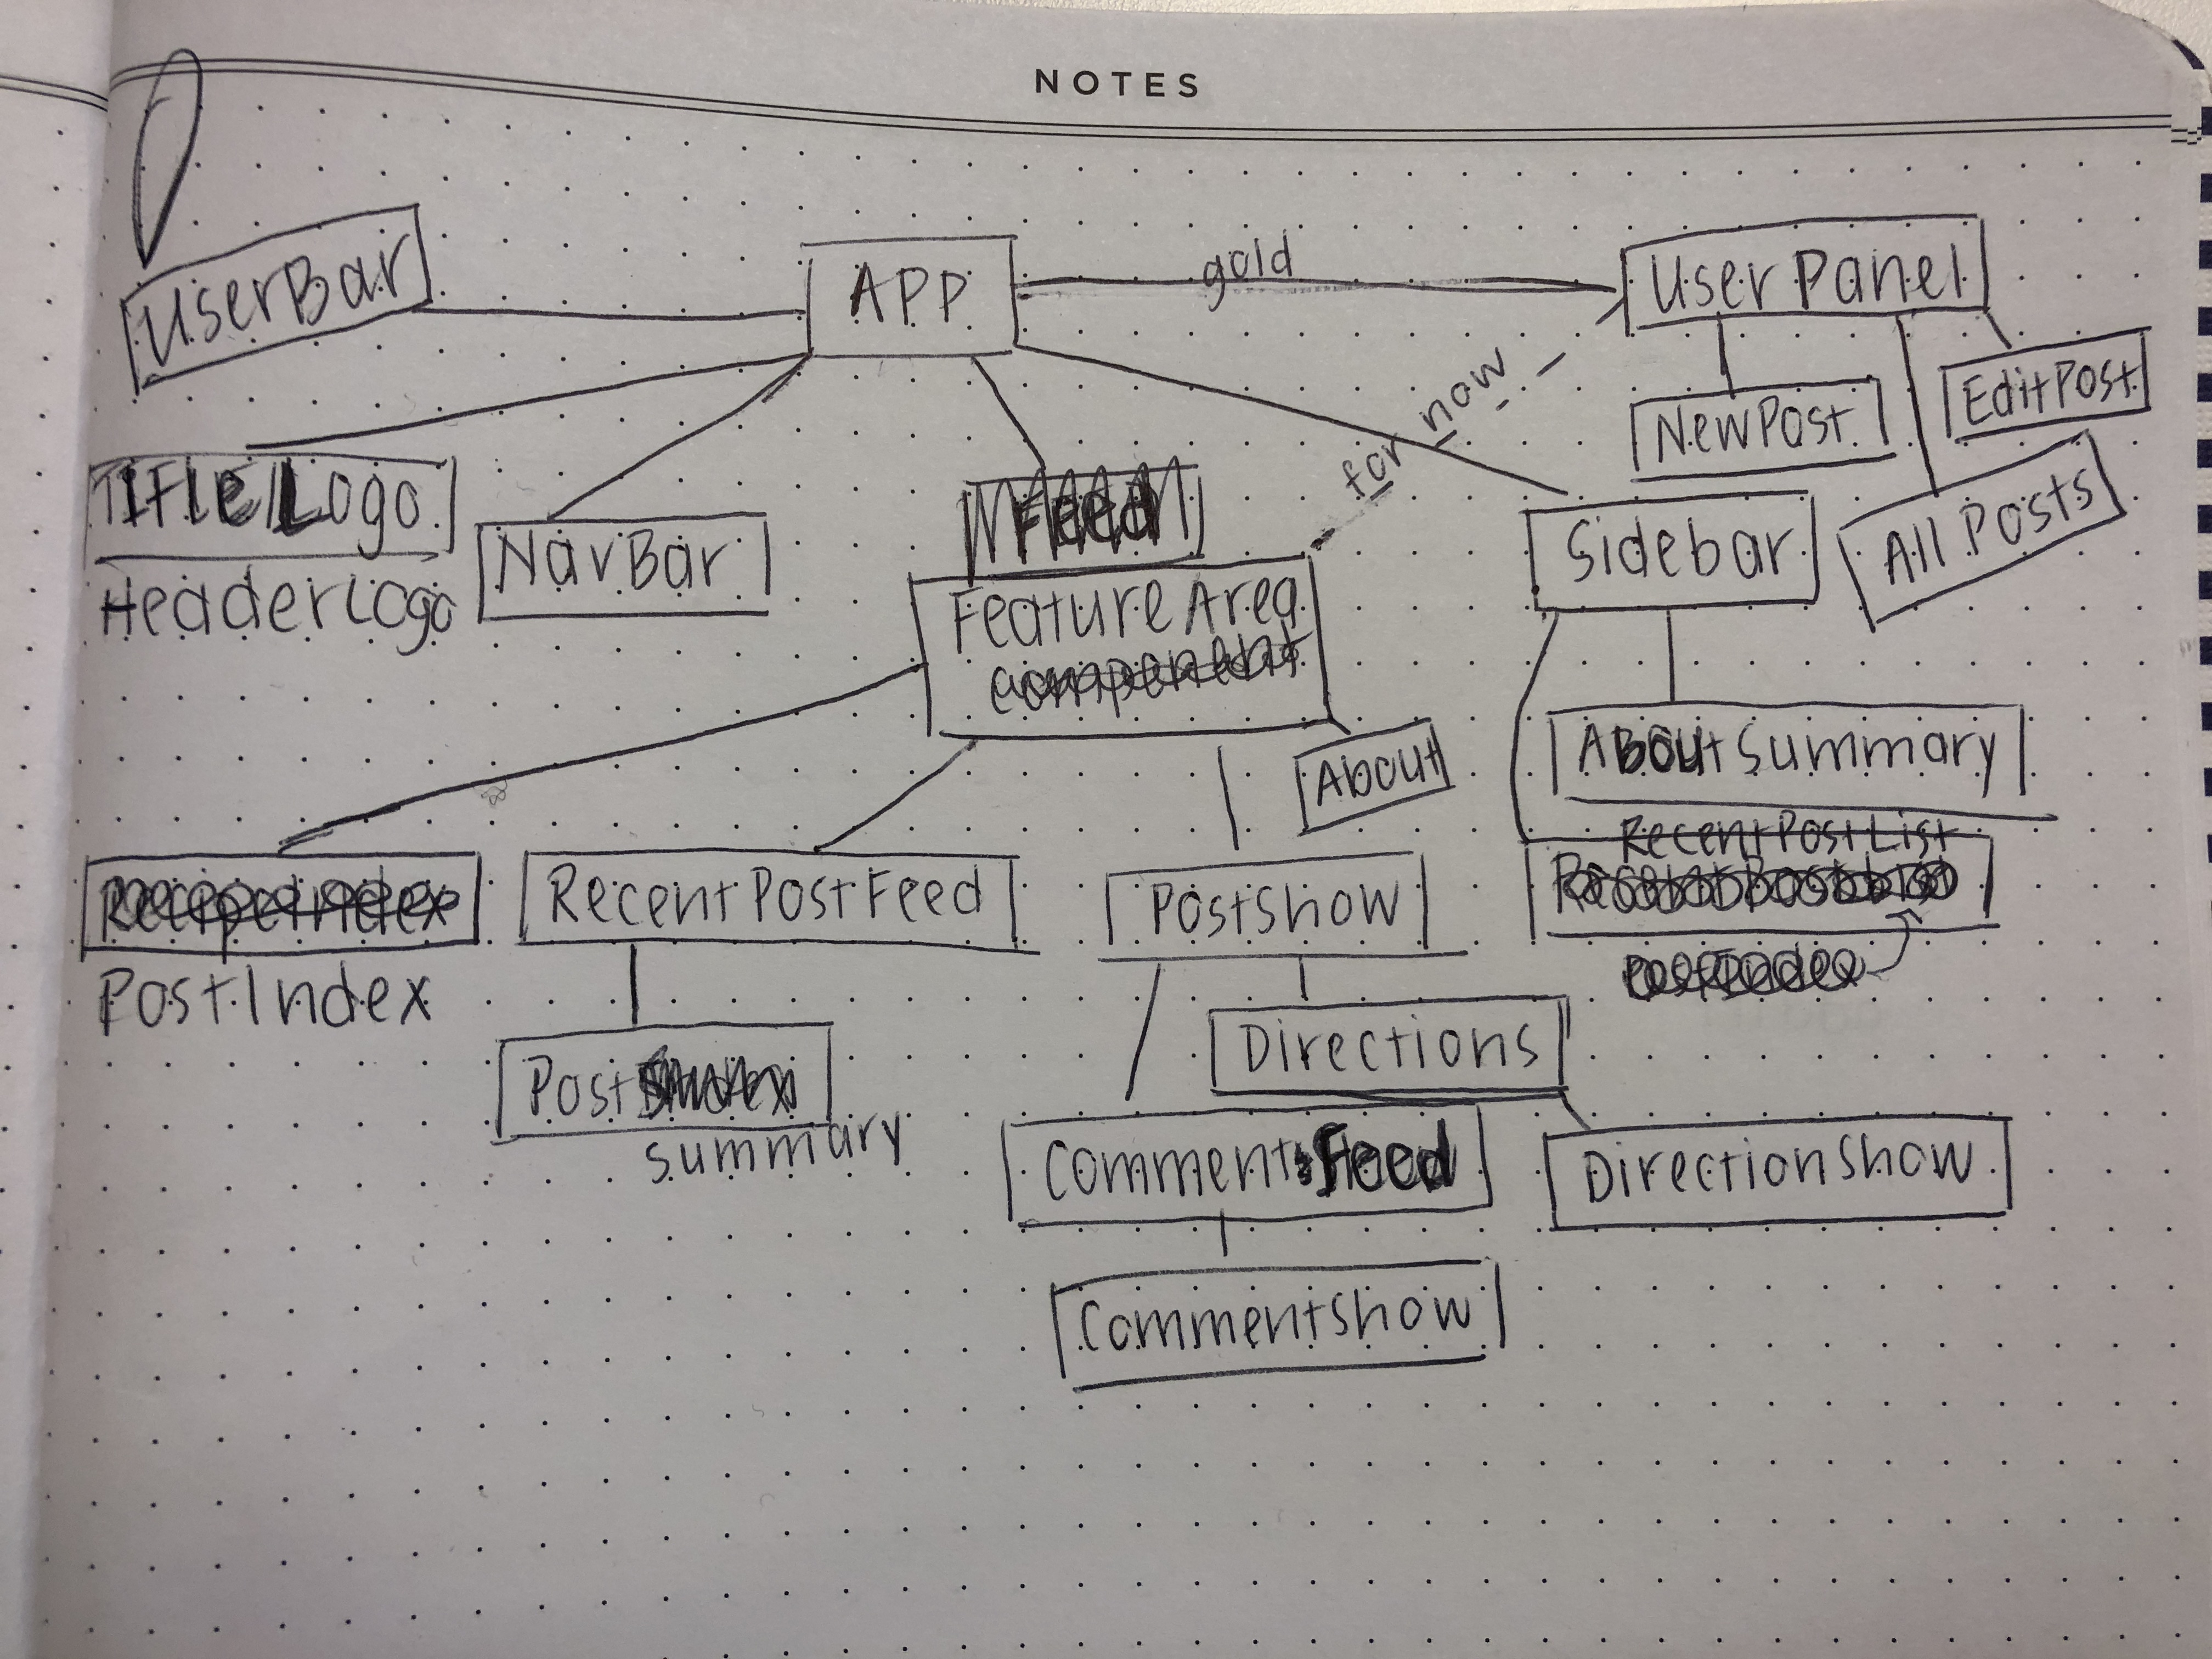 NOTES
UserBar
APP
gold
User Panel
for now
NewPost
EditPost
All Posts
Title/Logo
HeaderLogo
NavBar
Feed
Feature Area
component
Sidebar
About
AboutSummary
RecentPostList
RecipeIndex
PostIndex
RecentPostFeed
PostShow
PostIndex
Post
summary
Directions
CommentsFeed
DirectionShow
CommentShow